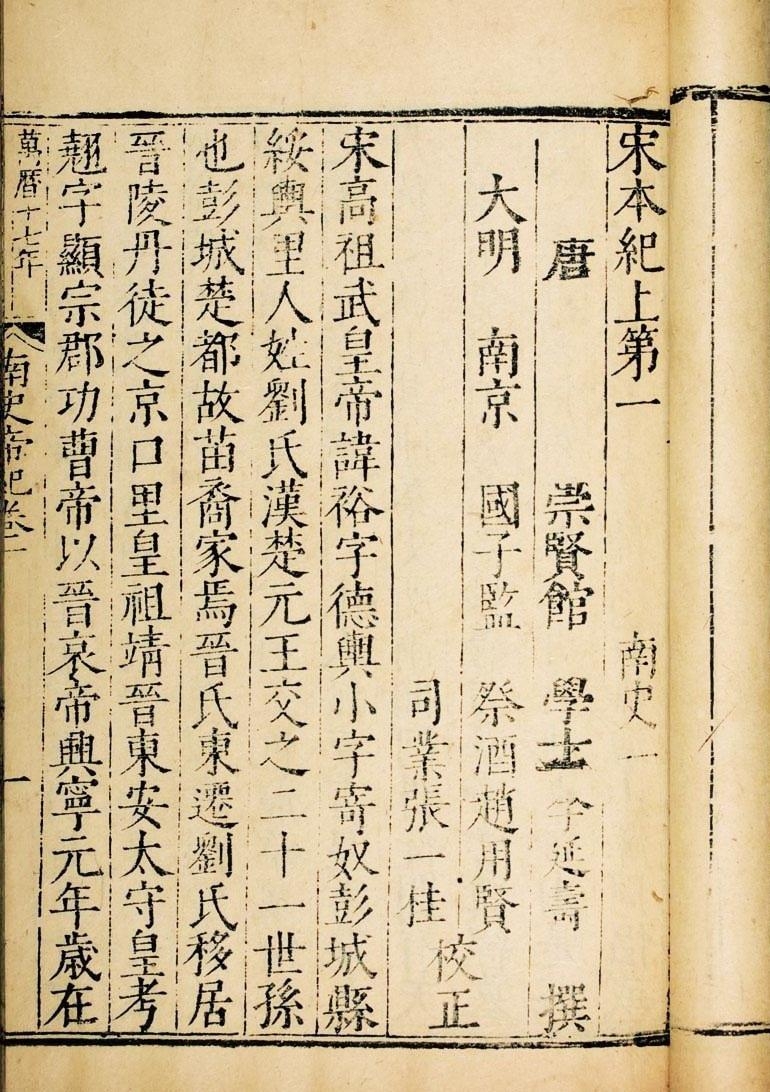 宋本紀上第一 南史一
唐 崇賢館 學士 李延壽 撰
大明 南京 國子監 祭酒趙用賢
司業張一桂
校正
宋高祖武皇帝諱裕字德輿小字寄奴彭城縣
綏輿里人姓劉氏漢楚元王交之二十一世孫
也彭城楚都故苗裔家焉晉氏東遷劉氏移居
晉陵丹徒之京口里皇祖靖晉東安太守皇考
翹字顯宗郡功曹帝以晉哀帝興寧元年歲在
萬曆十七年 南史帝紀卷一 一